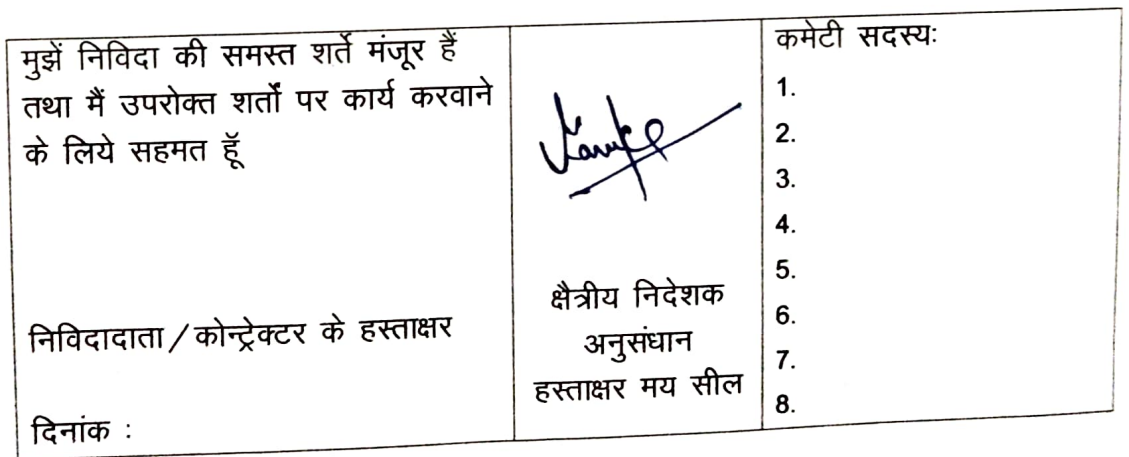 मुझें निविदा की समस्त शर्ते मंजूर हैं
तथा मैं उपरोक्त शर्तों पर कार्य करवाने
के लिये सहमत हूॅ
निविदादाता / कोन्ट्रेक्टर के हस्ताक्षर
दिनांक :
क्षैत्रीय निदेशक
अनुसंधान
हस्ताक्षर मय सील
कमेटी सदस्यः
1.
2.
3.
4.
5.
6.
7.
8.